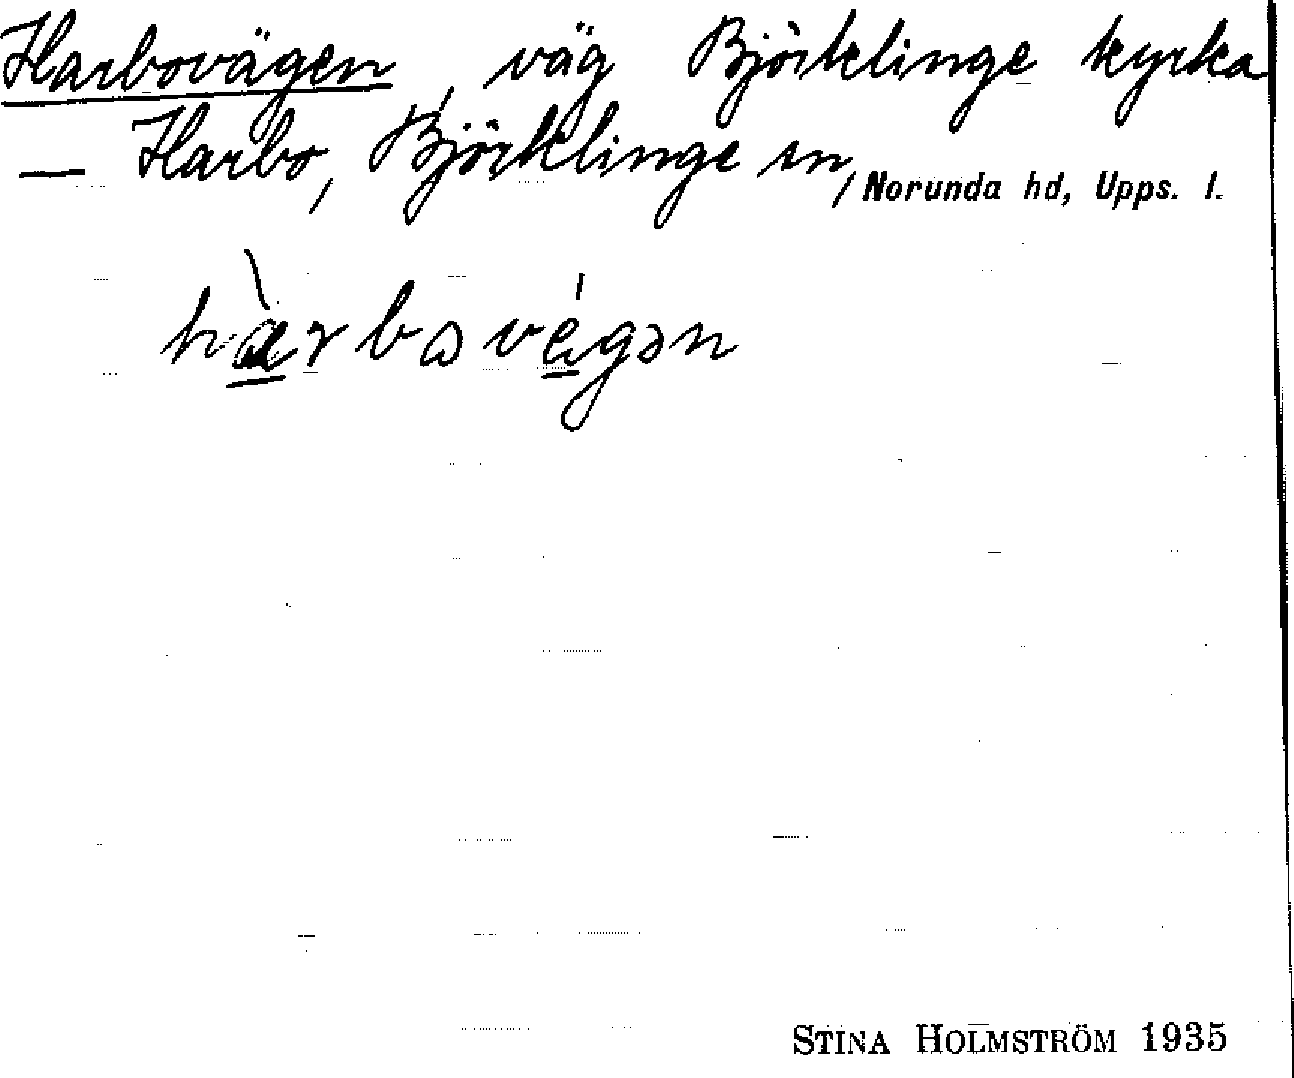 Harbovägen, väg Björklinge kyrka
— Harbo, Björklinge sn, Norunda hd, Upps. l.
hàrbωvégən
STINA HOLMSTRÖM 1935